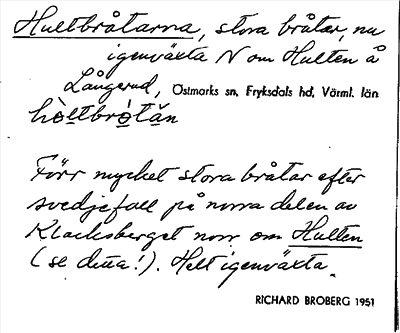 Hultbråtarna, stora bråtar, nu
igenväxta N om Hulten å
Långerud, Östmarks sn, Fryksdals hd, Värml. län
hòltbrò̀tăn
Förr mycket stora bråtar efter
svedjefall på norra delen av
Klacksberget norr om Hulten
(se detta!). Helt igenväxta.
RICHARD BROBERG 1951